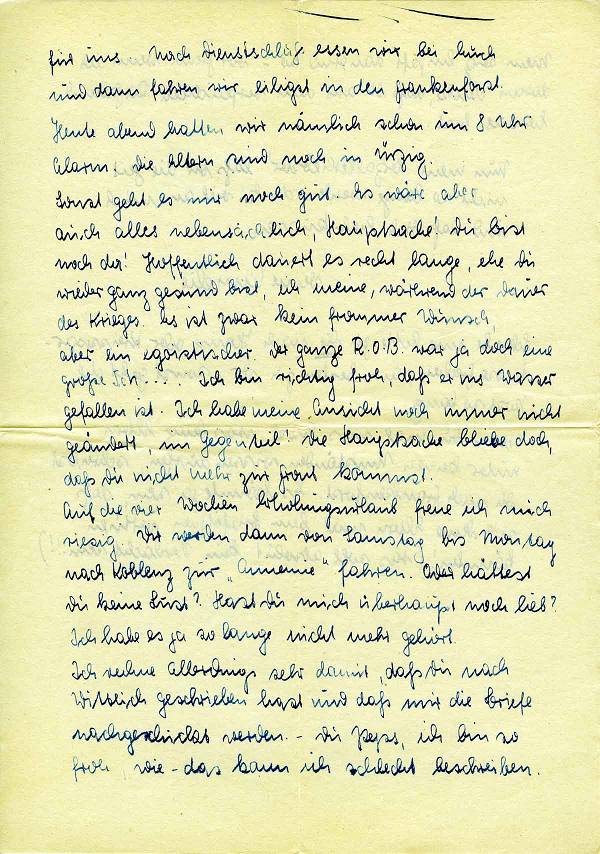 für uns. Nach Dienstschluß essen wir bei Euch
und dann fahren wir eiligst in den Frankenforst.
Heute abend hatten wir nämlich schon um 8 Uhr
Alarm! Die Eltern sind noch in Ürzig.
Sonst geht es mir noch gut. Es wäre aber
auch alles nebensächlich, Hauptsache! Du bist
noch da! Hoffentlich dauert es recht lange, ehe Du
wieder ganz gesund bist, ich meine, während der Dauer
des Krieges. Es ist zwar kein frommer Wunsch,
aber ein egoistischer. Der ganze R.O.B. war ja doch eine
große Sch.... Ich bin richtig froh, daß er ins Wasser
gefallen ist. Ich habe meine Ansicht noch immer nicht
geändert, im Gegenteil! Die Hauptsache bliebe doch,
daß Du nicht mehr zur Front kommst.
Auf die vier Wochen Erholungsurlaub freue ich mich
riesig. Wir werden dann von Samstag bis Montag
nach Koblenz zur „Annemie" fahren. Oder hättest
Du keine Lust? Hast Du mich überhaupt noch lieb?
Ich habe es ja so lange nicht mehr gehört.
Ich rechne allerdings sehr damit, daß Du nach
Wittlich geschrieben hast und daß mir die Briefe
nachgeschickt werden. - Du Peps, ich bin so
froh, wie - das kann ich schlecht beschreiben.